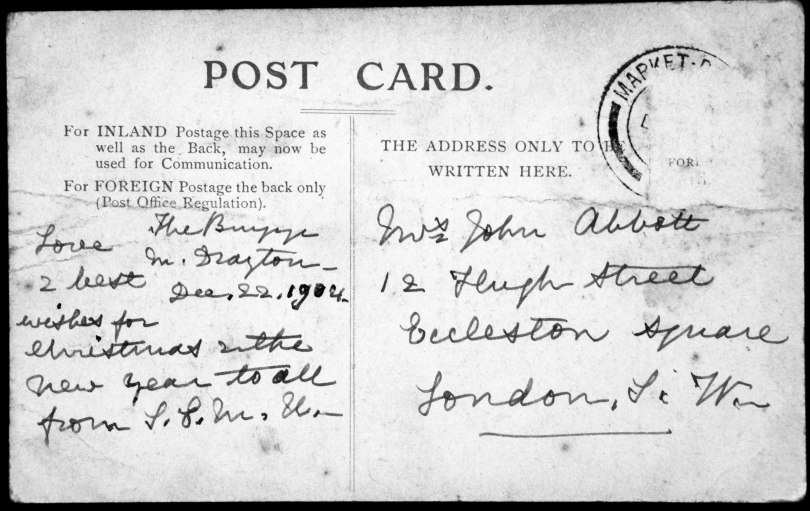 POST CARD.
For INLAND Postage this Space as
well as the Back, may now be
used for Communication.
For FOREIGN Postage the back only
(Post Office Regulation).
THE ADDRESS ONLY TO BE
WRITTEN HERE.
MARKET-D
FOR
The
M. Drayton
Dec. 22. 1904.
Love
& best
wishes for
Christmas & the
New Year to all
from
Mrs John Abbott
12 Hugh Street
Eccleston Square
London, S. W.